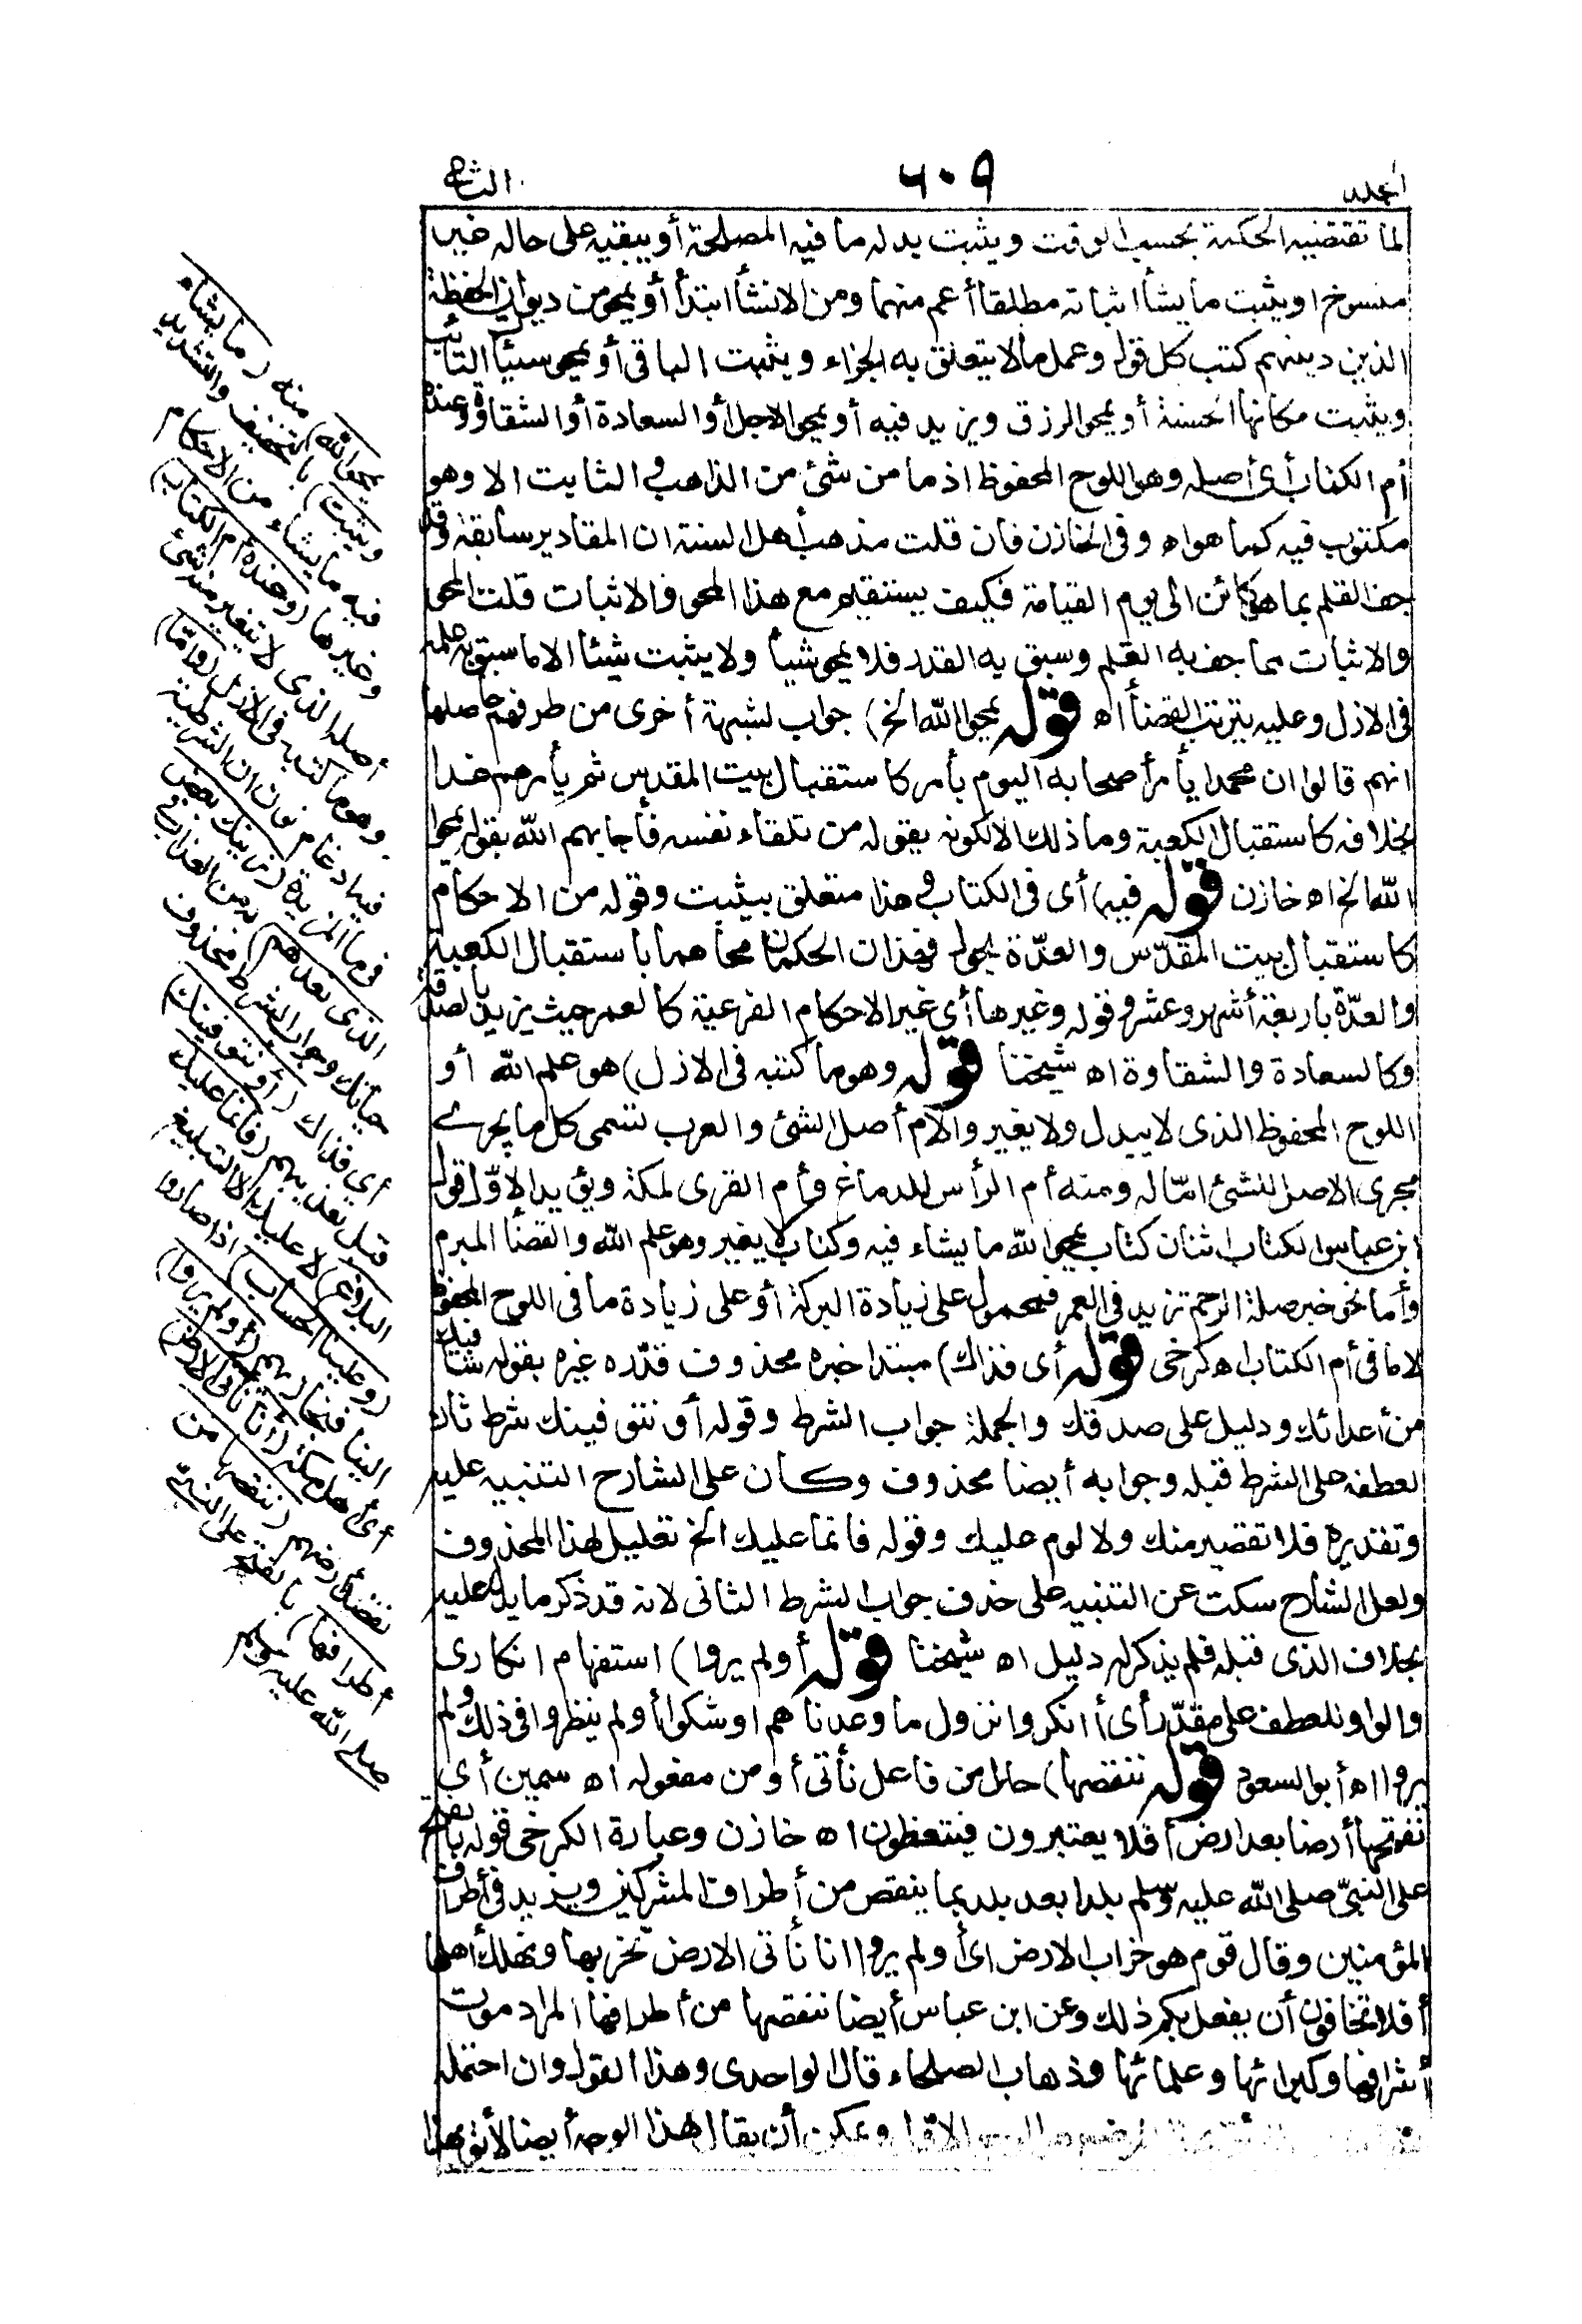 المجلد
٦٠٩
الثاني
لما تقتضيه الحكمة بحسب الوقت ويثبت بدله ما فيه المصلحة أو يبقيه على حاله غير
منسوخ او يثبت ما يشأ اثباته مطلقا أعم منهما ومن الانشأ ابتدأ أو يمحو من ديوان الحفظة
الذين ديدنهم كتب كل قول وعمل ما لا يتعلق به الجزاء ويثبت الباقى أو يمحو سيئات التائب
ويثبت مكانها الحسنة أو يمحو الرزق ويزيد فيه أو يمحو الاجل أو السعادة أو الشقاوة وعنده
أم الكتاب أى أصله وهو اللوح المحفوظ اذ ما من شئ من الذاهب والثابت الا وهو
مكتوب فيه كما هو اه وفى الخازن فان قلت مذهب أهل السنة ان المقادير سابقة وقد
جف القلم بما هو كائن الى يوم القيامة فكيف يستقيم مع هذا المحو والاثبات قلت المحو
والاثبات مما جف به القلم وسبق به القدر فلا يمحو شيأ ولا يثبت شيئا الا ما سبق به علمه
فى الازل وعليه يترتب القضأ اه قوله يمحوا الله الخ) جواب لشبهة أخرى من طرفهم حاصلها
انهم قالوا ان محمدا يأمر أصحابه اليوم بأمر كاستقبال بيت المقدس ثم يأمرهم غدا
بخلافه كاستقبال الكعبة وما ذلك الا لكونه يقوله من تلقاء نفسه فأجابهم الله بقوله يمحوا
الله الخ اه خازن قوله فيه) أى فى الكتاب وهذا متعلق بيثبت وقوله من الاحكام
كاستقبال بيت المقدّس والعدّة بحول فهذان الحكمان محاهما باستقبال الكعبة
والعدّة باربعة أشهر وعشر وقوله وغيرها أى غير الاحكام الفرعية كالعمر حيث يزيد بالصدقة
وكالسعادة والشقاوة اه شيخنا قوله وهو ما كتبه فى الازل) هو علم الله أو
اللوح المحفوظ الذى لا يبدل ولا يغير والام أصل الشئ والعرب تسمى كل ما يجرى
مجرى الاصل للشئ امّا له ومنه أم الرأس للدماغ وأم القرى لمكة ويؤيد الاوّل قول
ابن عباس الكتاب اثنان كتاب يمحو الله ما يشاء فيه وكتاب لا يغير وهو علم الله والقضأ المبرم
وأما نحو خبر صلة الرحم تزيد فى العمر فمحمول على زيادة البركة أو على زيادة ما فى اللوح المحفوظ
لا ما فى أم الكتاب اه كرخى قوله أى فذاك) مبتدا خبره محذوف قدّره غيره بقوله شافيك
من أعدائك ودليل على صدقك والجملة جواب الشرط وقوله أو نتوفينك شرط ثان
لعطفه على الشرط قبله وجوابه أيضا محذوف وكان على الشارح التنبيه عليه
وتقديره فلا تقصير منك ولا لوم عليك وقوله فانما عليك الخ تعليل لهذا المحذوف
ولعل الشارح سكت عن التنبيه على حذف جواب الشرط الثانى لانه قد ذكر ما يدل عليه
بخلاف الذى قبله فلم يذكر له دليل اه شيخنا قوله أولم يروا) استفهام انكارى
والواو للعطف على مقدّر أى أانكروا نزول ما وعدناهم او شكوا أولم ينظروا فى ذلك ولم
يروا اه أبو السعود قوله ننقصها) حال من فاعل نأتى أو من مفعوله اه سمين أى
نفتحها أرضا بعد ارض أفلا يعتبرون فيتعظون اه خازن وعبارة الكرخى قوله بالفتح
على النبىّ صلى الله عليه وسلم بلدا بعد بلد بما ينقص من أطراف المشركين ويزيد فى أطراف
المؤمنين وقال قوم هو خراب الارض أى أولم يروا انا نأتى الارض نخربها ونهلك أهلها
أفلا تخافون أن يفعل بكم ذلك وعن ابن عباس أيضا ننقصها من أطرافها المراد موت
أشرافها وكبرائها وعلمائها وذهاب الصلحاء قال الواحدى وهذا القول وان احتمله
الاوّل ويمكن أن يقال هذا الوجه أيضا لائق بهذا
يمحو الله) منه (ما يشاء
ويثبت) بالتخفيف والتشديد
فيه ما يشاء من الاحكام
وغيرها (وعنده أم الكتاب)
أصله الذى لا يتغير منه شئ
وهو ما كتبه فى الازل (وامّا)
فيه ادغام نون ان الشرطية
فى ما المزيدة (نرينك بعض
الذى نعدهم) به من العذاب فى
حياتك وجواب الشرط محذوف
أى فذاك (أو نتوفينك)
قبل تعذيبهم (فانما عليك
البلاغ) لا عليك الا التبليغ
(وعلينا الحساب) اذا صاروا
الينا فنجازيهم (أولم يروا)
أى أهل مكة (أنا نأتى الارض)
نقصد أرضهم (ننقصها من
أطرافها) بالفتح على النبىّ
صلى الله عليه وسلم